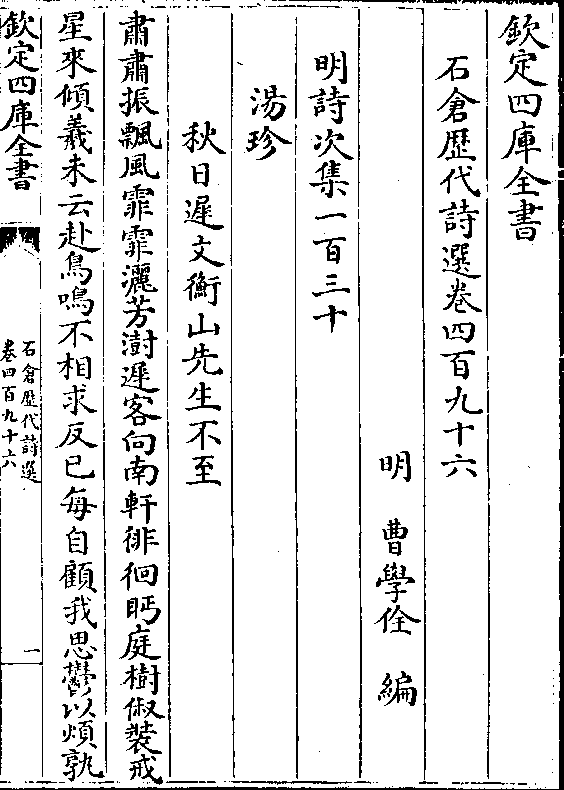 欽定四庫全書
石倉歴代詩選卷四百九十六
明　曹學佺　編
明詩次集一百三十
湯珍
秋日遲文衡山先生不至
肅肅振飄風霏霏灑芳澍遲客向南軒徘徊眄庭樹俶裝戒
星來傾羲未云赴鳥鳴不相求反已每自顧我思鬱以煩孰
欽定四庫全書
石倉歴代詩選
卷四百九十六
一